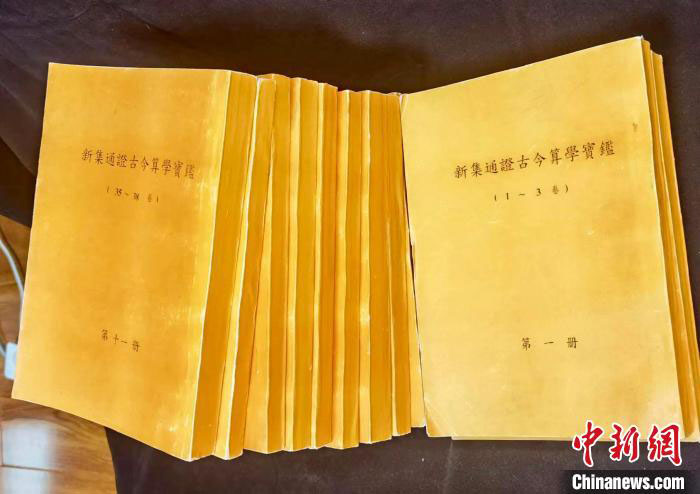 新集通證古今算學寶鑑
(35～38 卷)
第十一册
新集通證古今算學寶鑑
(1～3 卷)
第一册
中新网
Chinanews.com